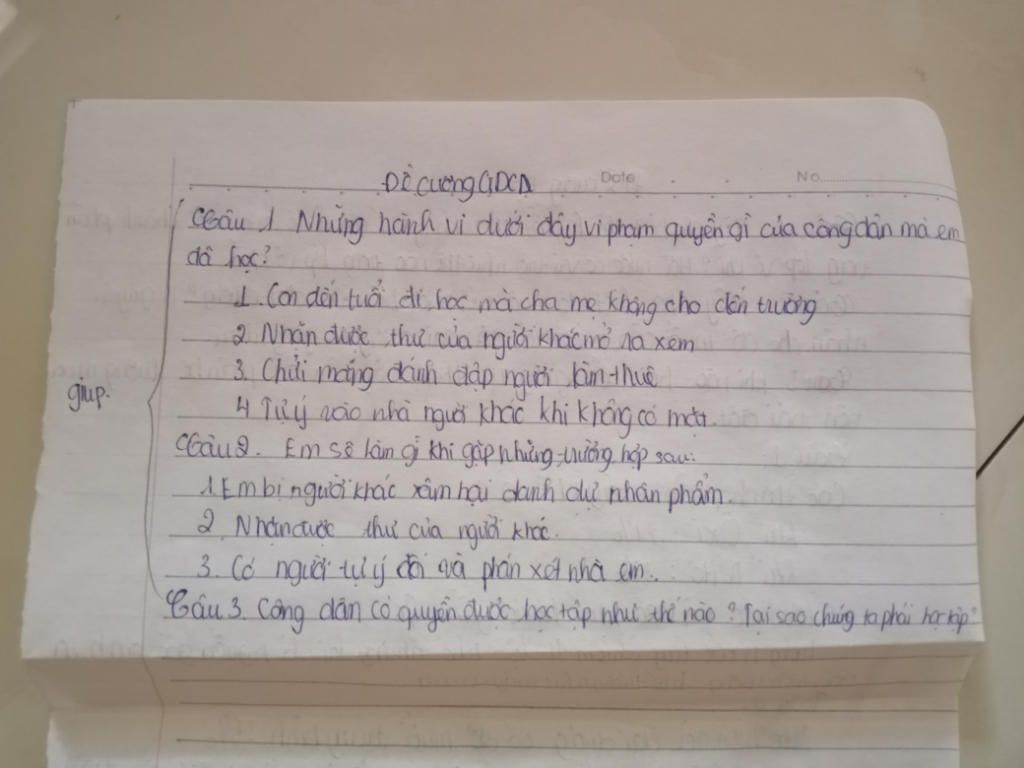 Đề cương GDCD Date No
Câu 1 Những hành vi dưới đây vi phạm quyền gì của công dân mà em
đã học?
1. Con đến tuổi đi học mà cha mẹ không cho đến trường
2 Nhận được thư của người khác mở ra xem
3. Chửi mắng đánh đập người làm thuê
giúp.
4 Tự ý vào nhà người khác khi không có mặt.
Câu 2. Em sẽ làm gì khi gặp những trường hợp sau:
1. Em bị người khác xâm hại danh dự nhân phẩm.
2. Nhận được thư của người khác.
3. Có người tự ý đòi và phán xét nhà em.
Câu 3. Công dân có quyền được học tập như thế nào? Tại sao chúng ta phải học tập?